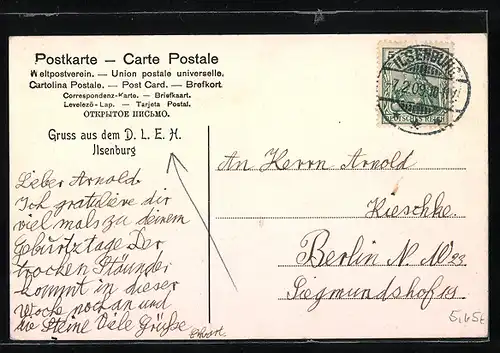 Postkarte – Carte Postale
Weltpostverein. — Union postale universelle.
Cartolina Postale. — Post Card. — Brefkort.
Correspondenz-Karte. — Briefkaart.
Levelező-Lap. — Tarjeta Postal.
ОТКРЫТОЕ ПИСЬМО.
Gruss aus dem D. L. E. H.
Jlsenburg
Lieber Arnold.
Ich gratulire dir
viel mals zu deinem
Geburtztage Der
trocken Ständer
kommt in dieser
Woche noch an und
die Steine Viele Grüße
ILSENBURG
7.2.09
DEUTSCHES REICH
An Herrn Arnold
Kieschke
Berlin N W 23
Siegmundshof 18